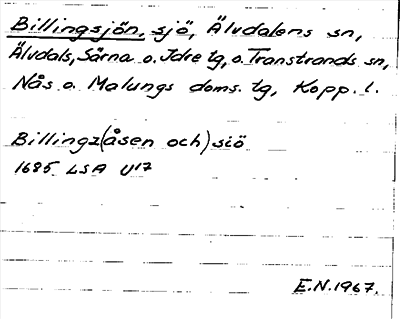 Billingsjön, sjö, Älvdalens sn,
Älvdals, Särna o. Idre tg, o. Transtrands sn,
Nås o. Malungs doms. tg, Kopp. l.
Billingz(åsen och) siö
1685 LSA U17
E.N. 1967.